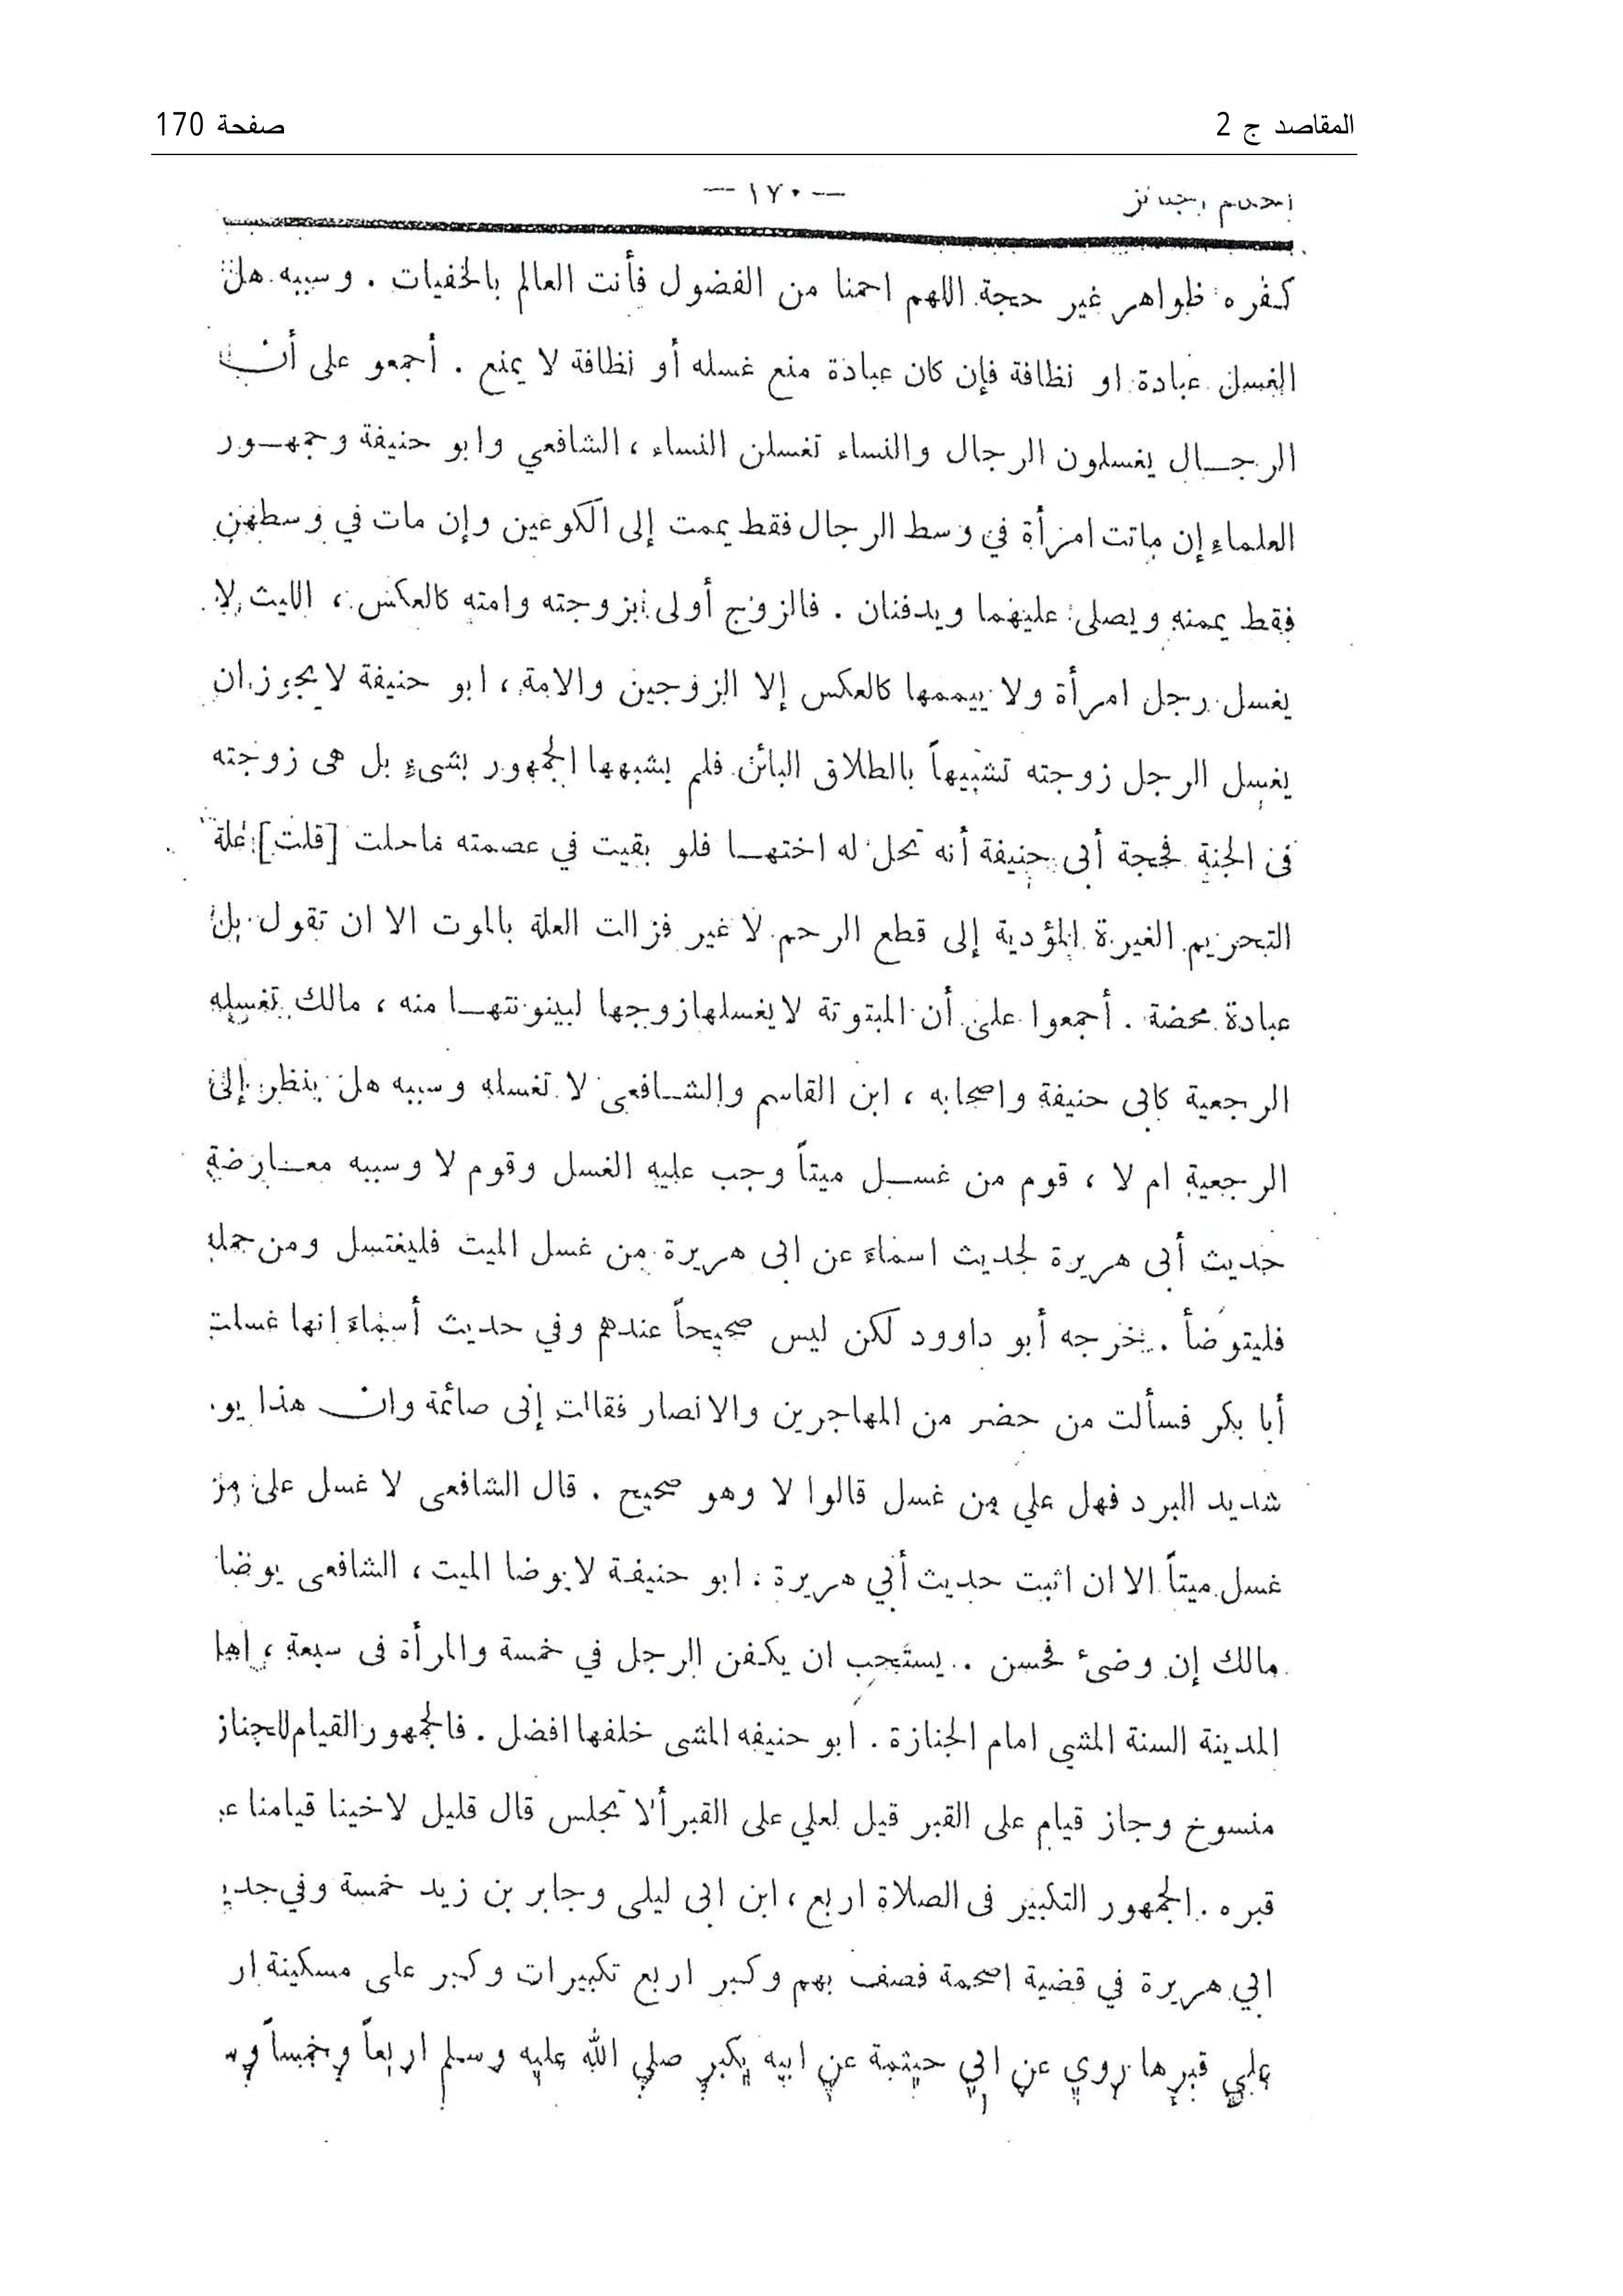 المقاصد ج 2
صفحة 170
— ١٧٠ —
كفره ظواهر غير حجة اللهم احمنا من الفضول فأنت العالم بالخفيات . وسببه هل
الغسل عبادة او نظافة فإن كان عبادة منع غسله أو نظافة لا يمنع . أجمعو على أن
الرجال يغسلون الرجال والنساء تغسلن النساء ، الشافعي وابو حنيفة وجمهور
العلماء إن ماتت امرأة في وسط الرجال فقط يممت إلى الكوعين وإن مات في وسطهن
فقط يممنه ويصلى عليهما ويدفنان . فالزوج أولى بزوجته وامته كالعكس ، الليث لا
يغسل رجل امرأة ولا ييممها كالعكس إلا الزوجين والامة ، ابو حنيفة لا يجوز ان
يغسل الرجل زوجته تشبيهاً بالطلاق البائن فلم يشبهها الجمهور بشيءٍ بل هى زوجته
فى الجنة فحجة أبى حنيفة أنه تحل له اختها فلو بقيت في عصمته ما حلت [قلت] علة
التحريم الغيرة المؤدية إلى قطع الرحم لا غير فزالت العلة بالموت الا ان تقول بل
عبادة محضة . أجمعوا على أن المبتوتة لا يغسلها زوجها لبينونتها منه ، مالك تغسله
الرجعية كابى حنيفة واصحابه ، ابن القاسم والشافعى لا تغسله وسببه هل ينظر إلى
الرجعية ام لا ، قوم من غسل ميتاً وجب عليه الغسل وقوم لا وسببه معارضة
حديث أبى هريرة لحديث اسماء عن ابى هريرة من غسل الميت فليغتسل ومن حمله
فليتوضأ . يخرجه أبو داوود لكن ليس صحيحاً عندهم وفي حديث أسماء انها غسلت
أبا بكر فسألت من حضر من المهاجرين والانصار فقالت إنى صائمة وان هذا يو
شديد البرد فهل علي من غسل قالوا لا وهو صحيح . قال الشافعى لا غسل على من
غسل ميتاً الا ان اثبت حديث أبي هريرة . ابو حنيفة لا يوضا الميت ، الشافعى يوضا
مالك إن وضئ فحسن . يستحب ان يكفن الرجل في خمسة والمرأة فى سبعة ، اها
المدينة السنة المشي امام الجنازة . ابو حنيفه المشى خلفها افضل . فالجمهور القيام للجناز
منسوخ وجاز قيام على القبر قيل لعلي على القبر ألا تجلس قال قليل لاخينا قيامنا
قبره . الجمهور التكبير فى الصلاة اربع ، ابن ابى ليلى وجابر بن زيد خمسة وفي حدي
ابي هريرة في قضية اصحمة فصف بهم وكبر اربع تكبيرات وكبر على مسكينة ار
علي قبرها روي عن ابي حيثمة عن ابيه يكبر صلي الله عليه وسلم اربعاً وخمساً و